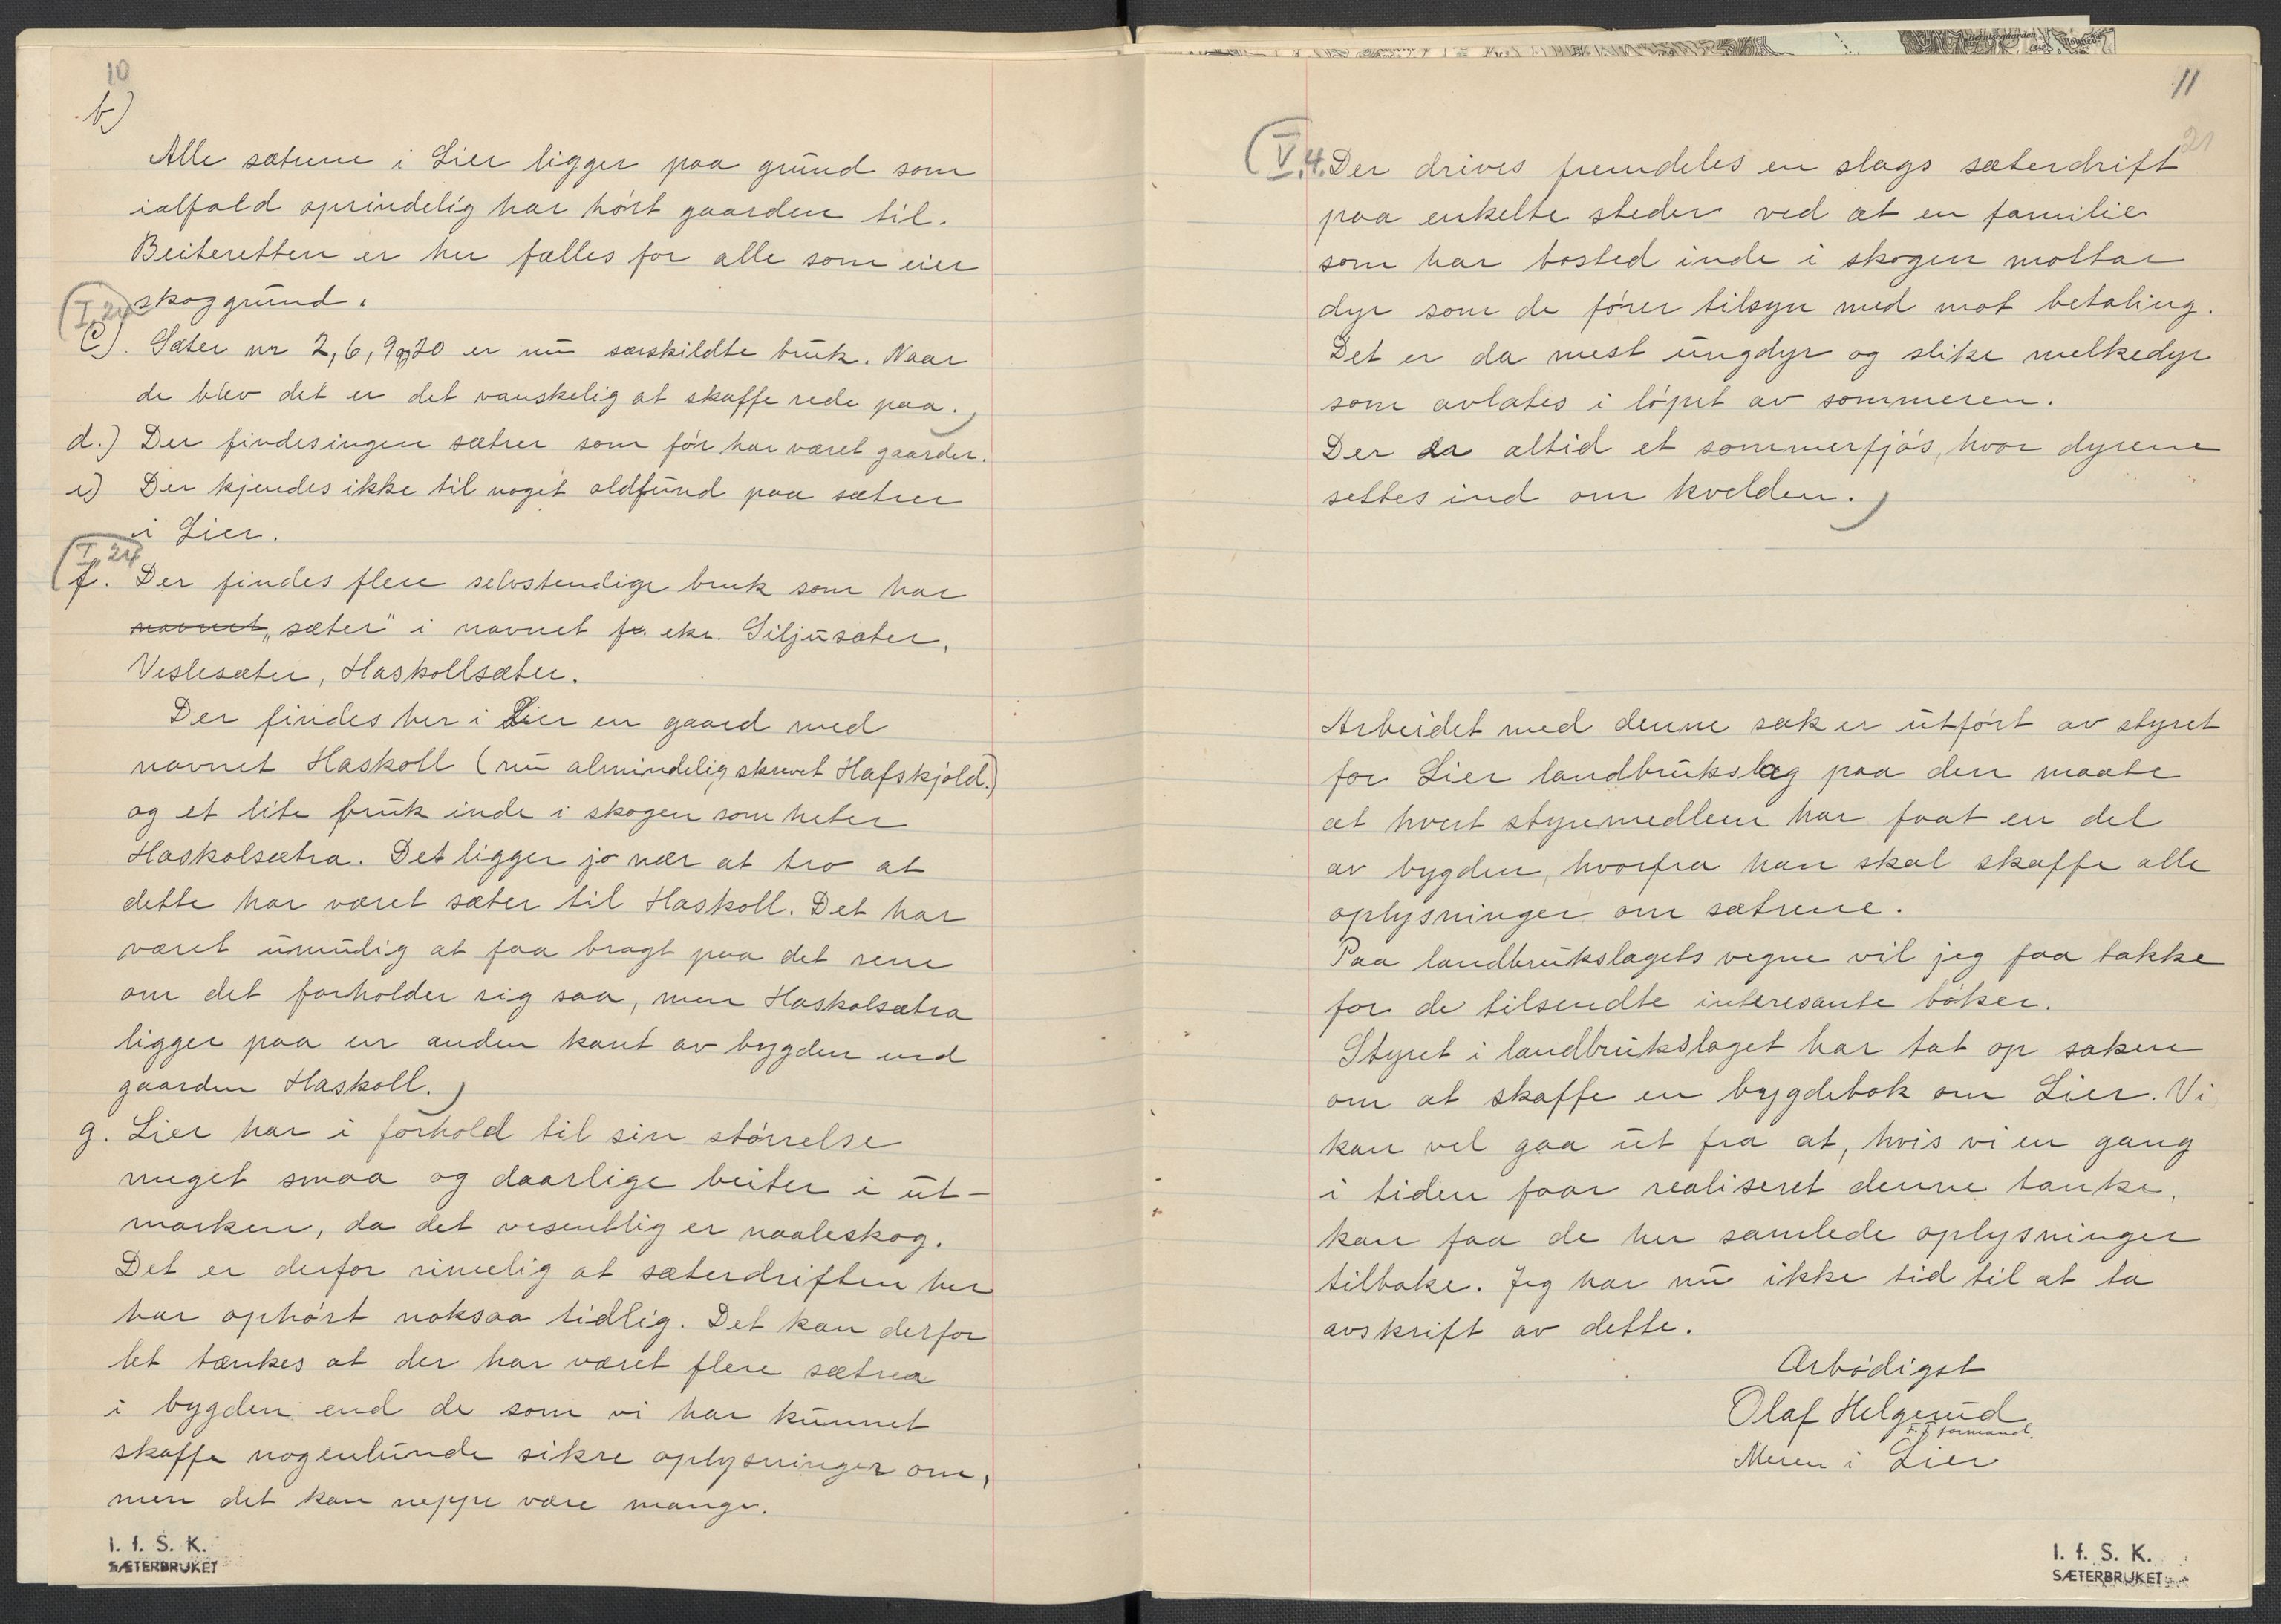 10
b)
Alle sætrene i Lier ligger paa grund som
ialfald oprindelig har hört gaarden til.
Beiteretten er her fælles for alle som eier
skoggrund.
(I, 24
c). Sæter nr 2, 6, 9 og 20 er nu særskildte bruk. Naar
de blev det er det vanskelig at skaffe rede paa.)
d.) Der findes ingen sætrer som för har været gaarder.
e) Der kjendes ikke til noget oldfund paa sætrer
i Lier.
(I, 24
f. Der findes flere selvstendige bruk som har
navnet „sæter" i navnet f. eks. Siljusæter,
Veslesæter, Haskollsæter.
Der findes her i Lier en gaard med
navnet Haskoll (nu almindelig skrevet Hafskjold.)
og et lite bruk inde i skogen som heter
Haskolsætra. Det ligger jo nær at tro at
dette har været sæter til Haskoll. Det har
været umulig at faa bragt paa det rene
om det forholder sig saa, men Haskolsætra
ligger paa en anden kant av bygden end
gaarden Haskoll.)
g. Lier har i forhold til sin störrelse
meget smaa og daarlige beiter i ut-
marken, da det vesentlig er naaleskog.
Det er derfor rimelig at sæterdriften her
har ophört noksaa tidlig. Det kan derfor
let tænkes at der har været flere sætrer
i bygden end de som vi har kunnet
skaffe nogenlunde sikre oplysninger om,
men det kan neppe være mange.
I. f. S. K.
SÆTERBRUKET
11
21
(V, 4. Der drives fremdeles en slags sæterdrift
paa enkelte steder ved at en familie
som har bosted inde i skogen mottar
dyr som de förer tilsyn med mot betaling.
Det er da mest ungdyr og slike melkedyr
som avlates i löpet av sommeren.
Der er altid et sommerfjös, hvor dyrene
settes ind om kvelden.)
Arbeidet med denne sak er utfört av styret
for Lier landbrukslag paa den maate
at hvert styremedlem har faat en del
av bygden, hvorfra han skal skaffe alle
oplysninger om sætrene.
Paa landbrukslagets vegne vil jeg faa takke
for de tilsendte interesante böker.
Styret i landbrukslaget har tat op saken
om at skaffe en bygdebok om Lier. Vi
kan vel gaa ut fra at, hvis vi en gang
i tiden faar realiseret denne tanke,
kan faa de her samlede oplysninger
tilbake. Jeg har nu ikke tid til at ta
avskrift av dette.
Ærbödigst
Olaf Helgerud,
F. T. formand.
Meren i Lier
I. f. S. K.
SÆTERBRUKET